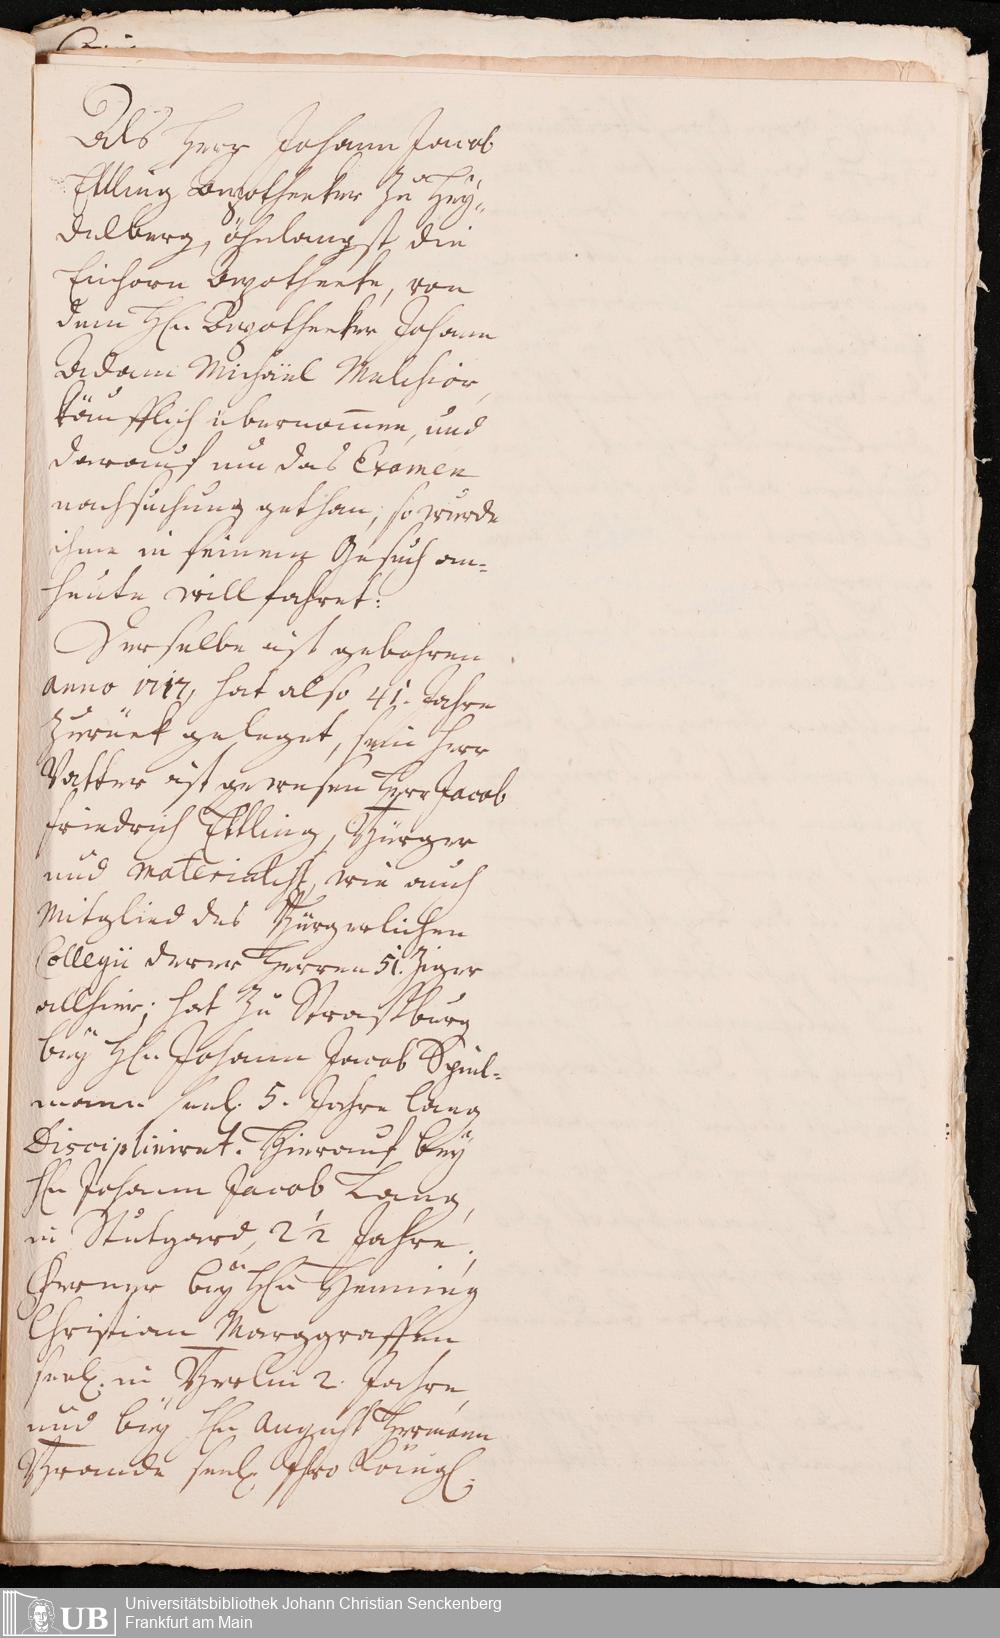 Als Herr Johann Jacob
Ettling Apotheeker zu Hey-
delberg, öhnlangst die
Einhorn Apotheeke, von
dem Hn. Apotheeker Johann
Adam Michäel Melchior,
käufflich übernom̄en, und
darauf um das Examen
nachsuchung gethan, so wurde
ihme in seinem Gesuch an-
heute willfahret:
Derselbe ist gebohren
anno 1717, hat also 41. Jahre
zurück geleget, sein Herr
Vatter ist gewesen Herr Jacob
Friedrich Ettling, Bürger
und Materialist, wie auch
Mitglied des Bürgerlichen
Collegii derer Herren 51.ziger
allhier; hat zu Strasburg
beÿ Hn. Johann Jacob Spiel-
mann seel. 5. Jahre lang
Discipliniret. Hierauf beÿ
Hn Johann Jacob Lang,
in Stutgard, 2 1/2 Jahre,
Ferner beÿ Hn Henning
Christian Marggraffen
seel. in Berlin 2. Jahre,
und beÿ Hn August Hermann
Brande seel. Ihro Königl.
Universitätsbibliothek Johann Christian Senckenberg
UB
Frankfurt am Main